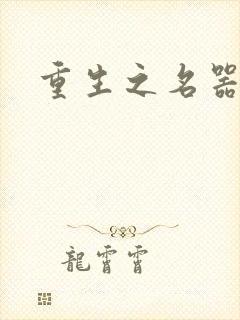 重生之名器
龍霄霄